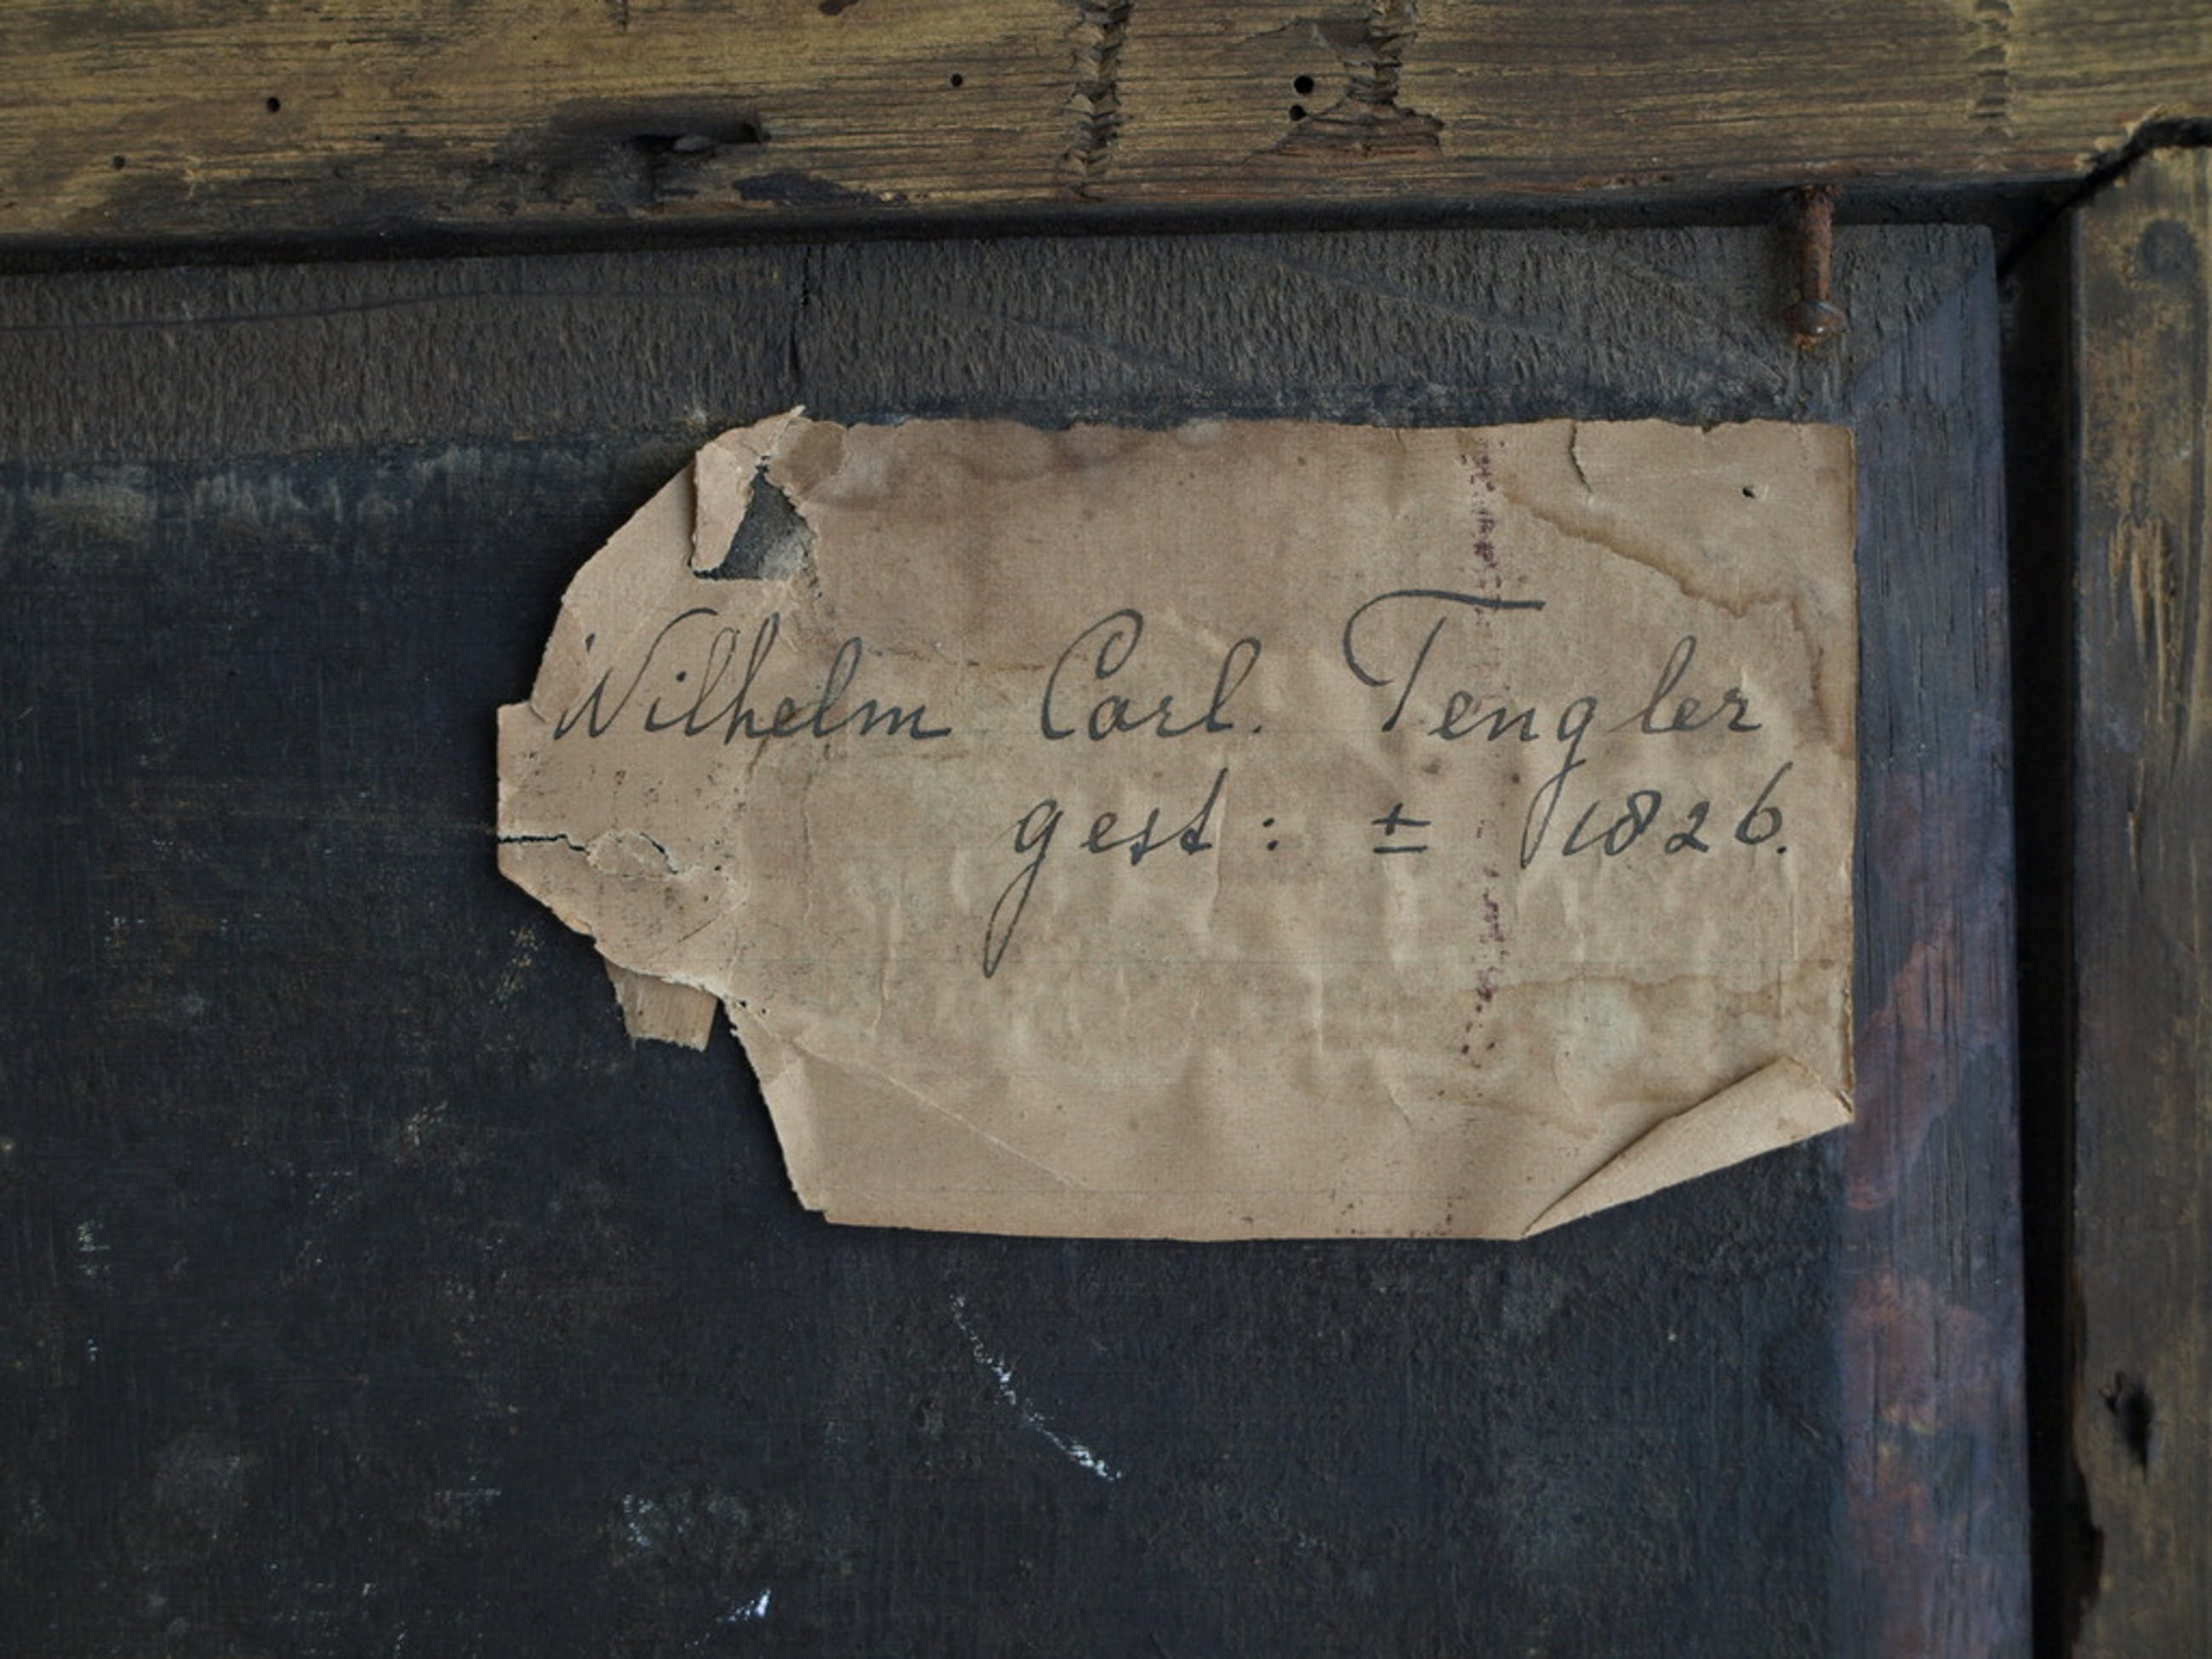 Wilhelm Carl. Tengler
gest: ± 1826.